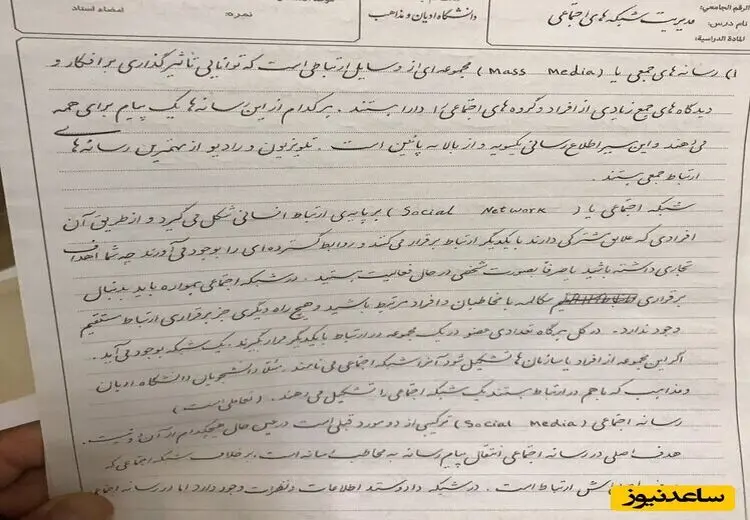 رقم الجامعي:
نام درس: مدیریت شبکه های اجتماعی
لمادة الدراسية:
دانشگاه ادیان و مذاهب
نمره:
امضاء استاد
۱) رسانه های جمعی یا ( Mass Media ) مجموعه ای از وسایل ارتباطی است که توانایی تأثیرگذاری بر افکار و
دیدگاه های جمع زیادی از افراد و گروه های اجتماعی را دارا هستند . هر کدام از این رسانه ها یک پیام برای همه
می دهند و این سیر اطلاع رسانی یکسویه و از بالا به پائین است . تلویزیون و رادیو از مهمترین رسانه های
ارتباط جمعی هستند .
شبکه اجتماعی یا ( Social Network ) بر پایه ی ارتباط انسانی شکل می گیرد و از طریق آن
افرادی که علایق مشترکی دارند با یکدیگر ارتباط برقرار می کنند و روابط گسترده ای را بوجود می آورند چه شما اهداف
تجاری داشته باشید یا صرفاً بصورت شخصی در حال فعالیت هستید . در شبکه اجتماعی همواره باید بدنبال
برقراری مکالمه با مخاطبان و افراد مرتبط باشید و هیچ راه دیگری جز برقراری ارتباط مستقیم
وجود ندارد . در کل هرگاه تعدادی عضو در یک مجموعه در ارتباط با یکدیگر قرار بگیرند . یک شبکه بوجود می آید .
اگر این مجموعه از افراد یا سازمان ها تشکیل شود آنرا شبکه اجتماعی می نامند . مثلاً دانشجویان دانشگاه ادیان
و مذاهب که با هم در ارتباط هستند یک شبکه اجتماعی را تشکیل می دهند . ( تعاملی است )
رسانه اجتماعی ( Social Media ) ترکیبی از دو مورد قبلی است در عین حال هیچکدام از آن دو نیست .
هدف اصلی در رسانه اجتماعی انتقال پیام رسانه به مخاطب است . بر خلاف شبکه اجتماعی که
ارتباط است . در شبکه داد و ستد اطلاعات و نظرات وجود دارد اما در رسانه اجتماعی
ساعدنیوز